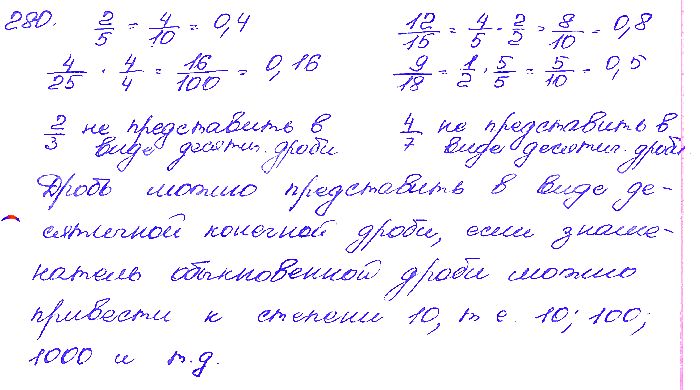 280. 2/5 = 4/10 = 0,4 12/15 = 4/5 · 2/2 = 8/10 = 0,8
4/25 · 4/4 = 16/100 = 0,16 9/18 = 1/2 · 5/5 = 5/10 = 0,5
2/3 не представить в виде десятич. дроби
4/7 не представить в виде десятич. дроби
Дробь можно представить в виде де-
сятичной конечной дроби, если знаме-
натель обыкновенной дроби можно
привести к степени 10, т е. 10; 100;
1000 и т.д.